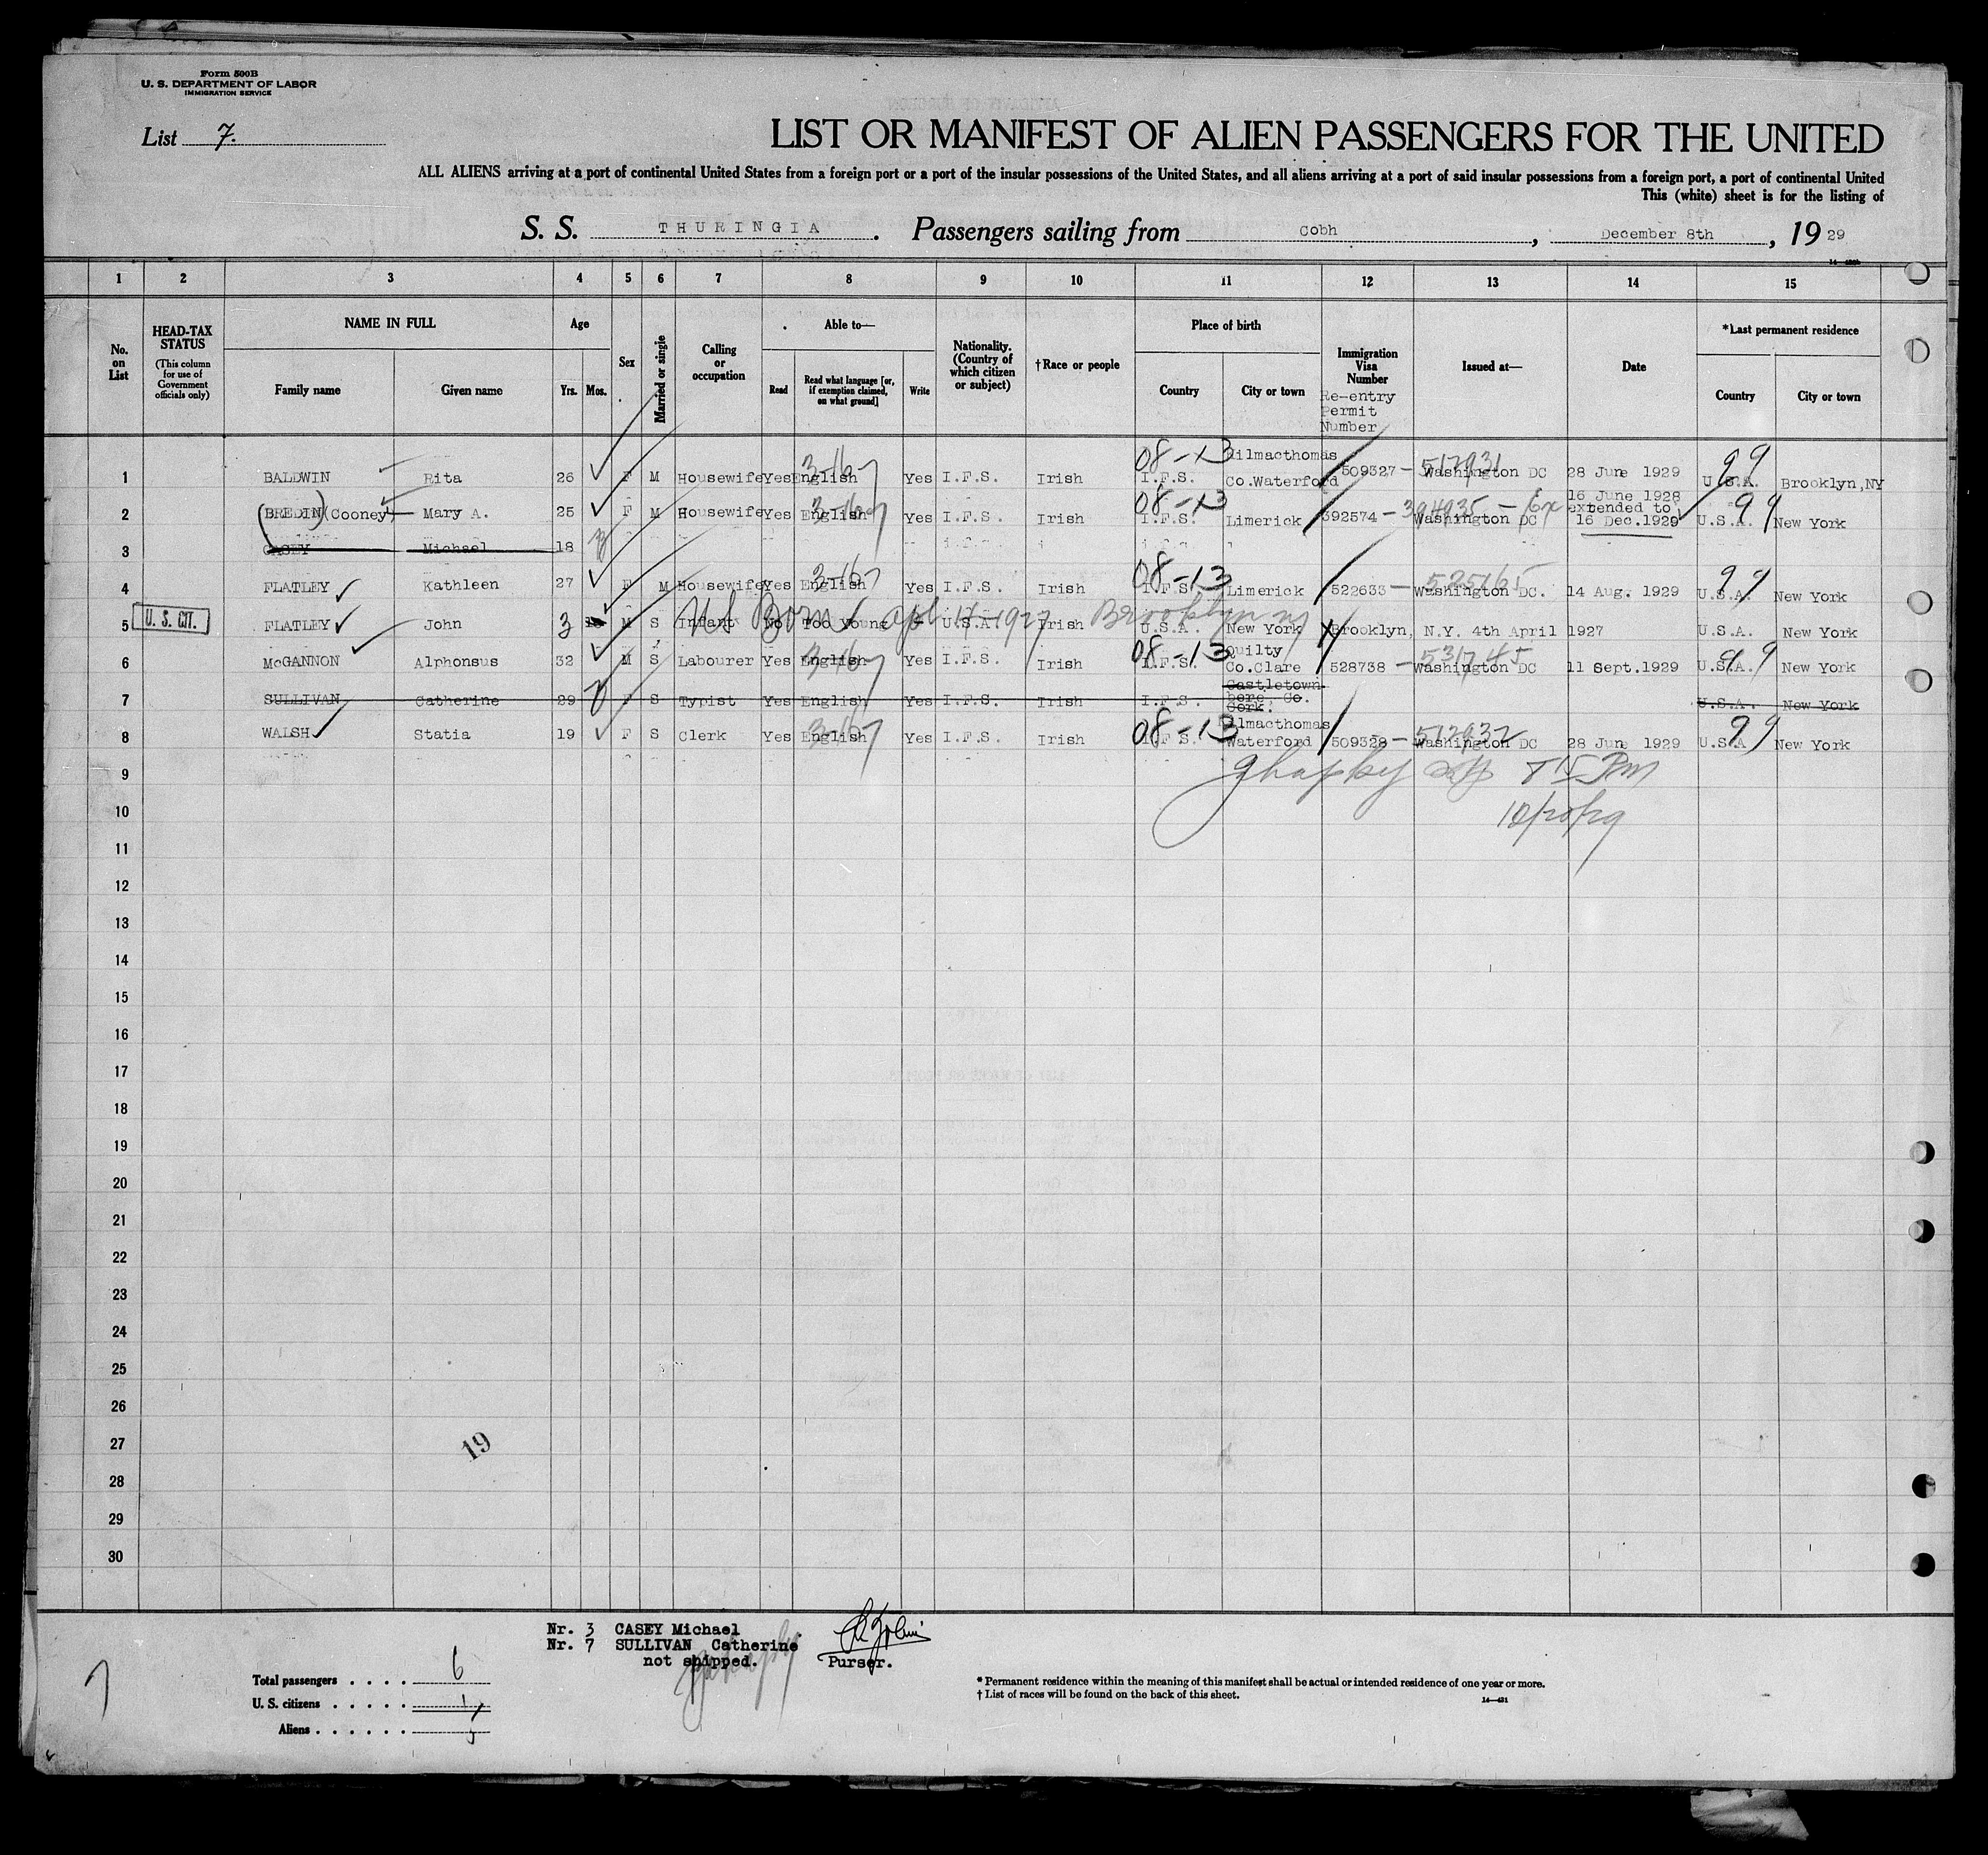 Form 500B
U. S. DEPARTMENT OF LABOR
IMMIGRATION SERVICE
List 7.
LIST OR MANIFEST OF ALIEN PASSENGERS FOR THE UNITED
ALL ALIENS arriving at a port of continental United States from a foreign port or a port of the insular possessions of the United States, and all aliens arriving at a port of said insular possessions from a foreign port, a port of continental United
This (white) sheet is for the listing of
S. S. THURINGIA. Passengers sailing from Cobh, December 8th, 19 29
1 2 3 4 5 6 7 8 9 10 11 12 13 14 15
No. on List
HEAD-TAX STATUS (This column for use of Government officials only)
NAME IN FULL Family name Given name
Age Yrs. Mos.
Sex
Married or single
Calling or occupation
Able to— Read Read what language [or, if exemption claimed, on what ground] Write
Nationality. (Country of which citizen or subject)
†Race or people
Place of birth Country City or town
Immigration Visa Number Re-entry Permit Number
Issued at—
Date
*Last permanent residence Country City or town
1 BALDWIN Rita 26 F M Housewife Yes English 3-16 Yes I.F.S. Irish 08-13 I.F.S. Kilmacthomas Co.Waterford 509327 - 517931 Washington DC 28 June 1929 99 U.S.A. Brooklyn,NY
2 (BREDIN) (Cooney) Mary A. 25 F M Housewife Yes English Yes I.F.S. Irish 08-13 I.F.S. Limerick 392574 - 394935 Washington DC 16 June 1928 extended to 16 Dec.1929 99 U.S.A. New York
3 CASEY Michael 18
4 FLATLEY Kathleen 27 F M Housewife Yes English 3-16 Yes I.F.S. Irish 08-13 I.F.S. Limerick 522633 - 525165 Washington DC. 14 Aug. 1929 99 U.S.A. New York
U. S. CIT.
5 FLATLEY John 3 M S Infant No Too young U.S.A. Irish U.S.A. New York Brooklyn, N.Y. 4th April 1927 U.S.A. New York
US Born 1927 Brooklyn NY
6 McGANNON Alphonsus 32 M S Labourer Yes English Yes I.F.S. Irish 08-13 I.F.S. Quilty Co.Clare 528738 - 531745 Washington DC 11 Sept.1929 99 U.S.A. New York
7 SULLIVAN Catherine 29 F S Typist Yes English Yes I.F.S. Irish I.F.S. Castletown bere, Co. Cork. U.S.A. New York
8 WALSH Statia 19 F S Clerk Yes English Yes I.F.S. Irish 08-13 I.F.S. Kilmacthomas Waterford 509328 - 517932 Washington DC 28 June 1929 99 U.S.A New York
9
10
11
12
13
14
15
16
17
18
19
20
21
22
23
24
25
26
27
28
29
30
19
Nr. 3 CASEY Michael
Nr. 7 SULLIVAN Catherine
not shipped.
Purser.
Total passengers . . . . 6
U. S. citizens . . . . . 1
Aliens . . . . . . 5
7
* Permanent residence within the meaning of this manifest shall be actual or intended residence of one year or more.
† List of races will be found on the back of this sheet.